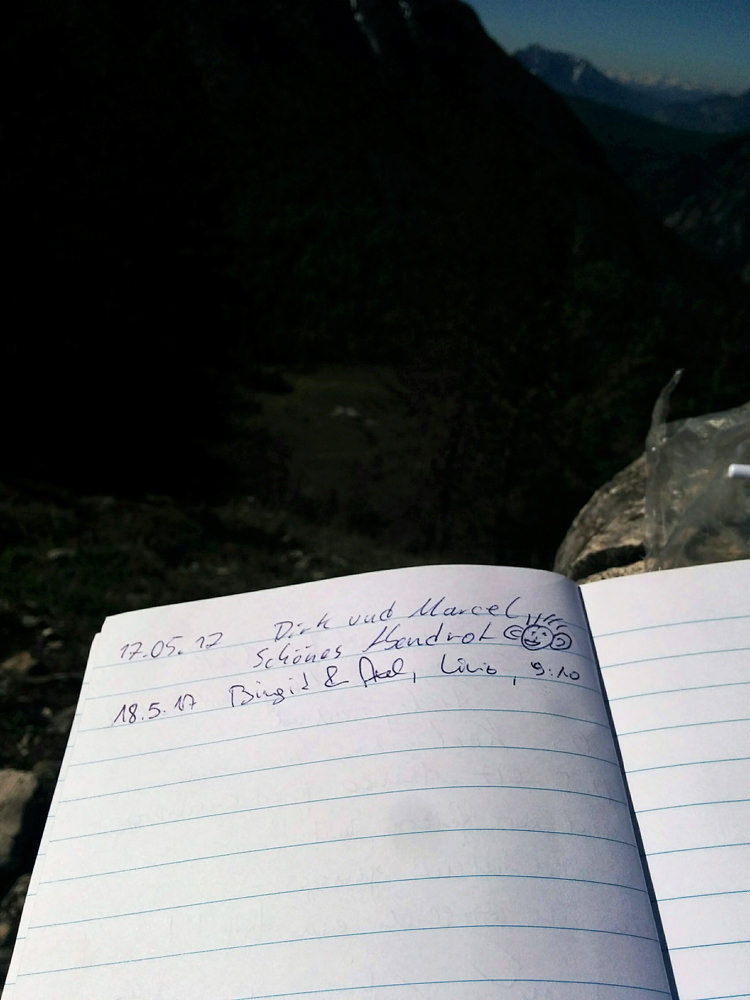 17.05.17 Dirk und Marcel
Schönes Abendrot
18.5.17 Birgit & Axel, Livio, 9:10